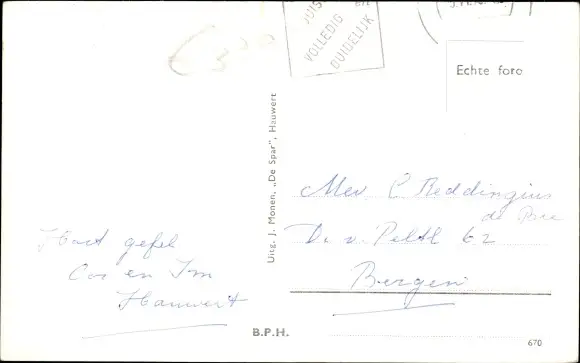 JUIS
VOLLEDIG
DUIDELIJK
Echte foto
Uitg. J. Monen, „De Spar", Hauwert
Mev C Reddingius
de Bie
Dr. v. Peltl 62
Bergen
Hart gefel
Cos en Im
Hauwert
B.P.H.
670